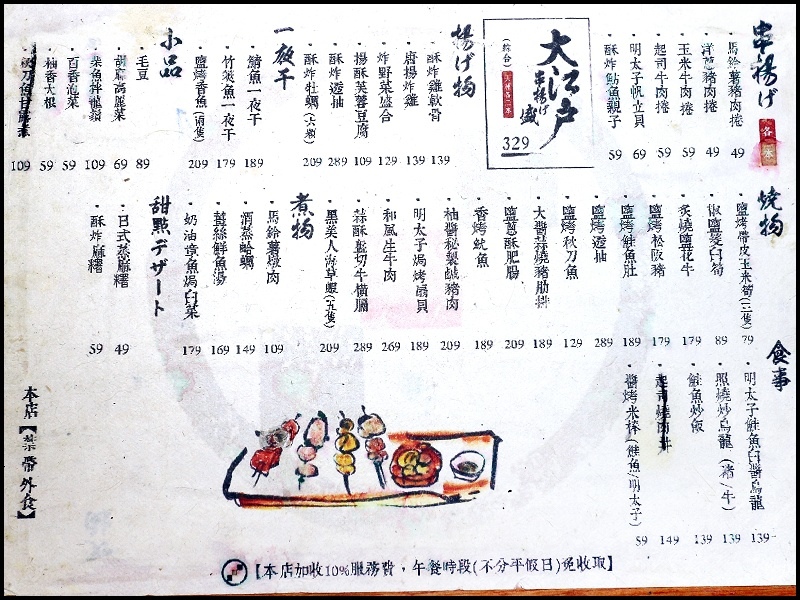 串揚げ
各一本
馬鈴薯豬肉捲 49
洋蔥豬肉捲 49
玉米牛肉捲 59
起司牛肉捲 59
明太子帆立貝 69
酥炸鮎魚親子 59
大江戶
串揚げ盛
(綜合)
329
揚げ物
酥炸雞軟骨 139
唐揚炸雞 139
炸野菜盛合 129
揚酥芙蓉豆腐 109
酥炸透抽 289
酥炸牡蠣(六顆) 209
一夜干
鯖魚一夜干 189
竹筴魚一夜干 179
鹽烤香魚(兩隻) 209
小品
毛豆 89
胡麻高麗菜 69
柴魚拌龍鬚 109
百香泡菜 59
柚香大根 59
秋刀魚甘露煮 109
燒物
鹽烤帶皮玉米筍(三隻) 79
椒鹽茭白筍 89
炙燒鹽花牛 179
鹽烤松阪豬 179
鹽烤鮭魚肚 189
鹽烤透抽 289
鹽烤秋刀魚 129
大醬蒜燒豬肋排 189
鹽蔥酥肥腸 209
香烤魷魚 189
柚醬秘製鹹豬肉 209
明太子焗烤扇貝 189
和風生牛肉 269
蒜酥骰切牛橫膈 289
黑美人海草蝦(五隻) 209
煮物
馬鈴薯燉肉 109
酒蒸蛤蠣 149
薑絲鮮魚湯 169
奶油章魚焗白菜 179
甜點デザート
日式蒸麻糬 49
酥炸麻糬 59
食事
明太子鮭魚白醬烏龍 139
照燒炒烏龍(豬/牛) 139
鮭魚炒飯 139
起司燒肉丼 149
醬烤米棒(鮭魚/明太子) 59
本店【禁帶外食】
【本店加收10%服務費，午餐時段(不分平假日)免收取】